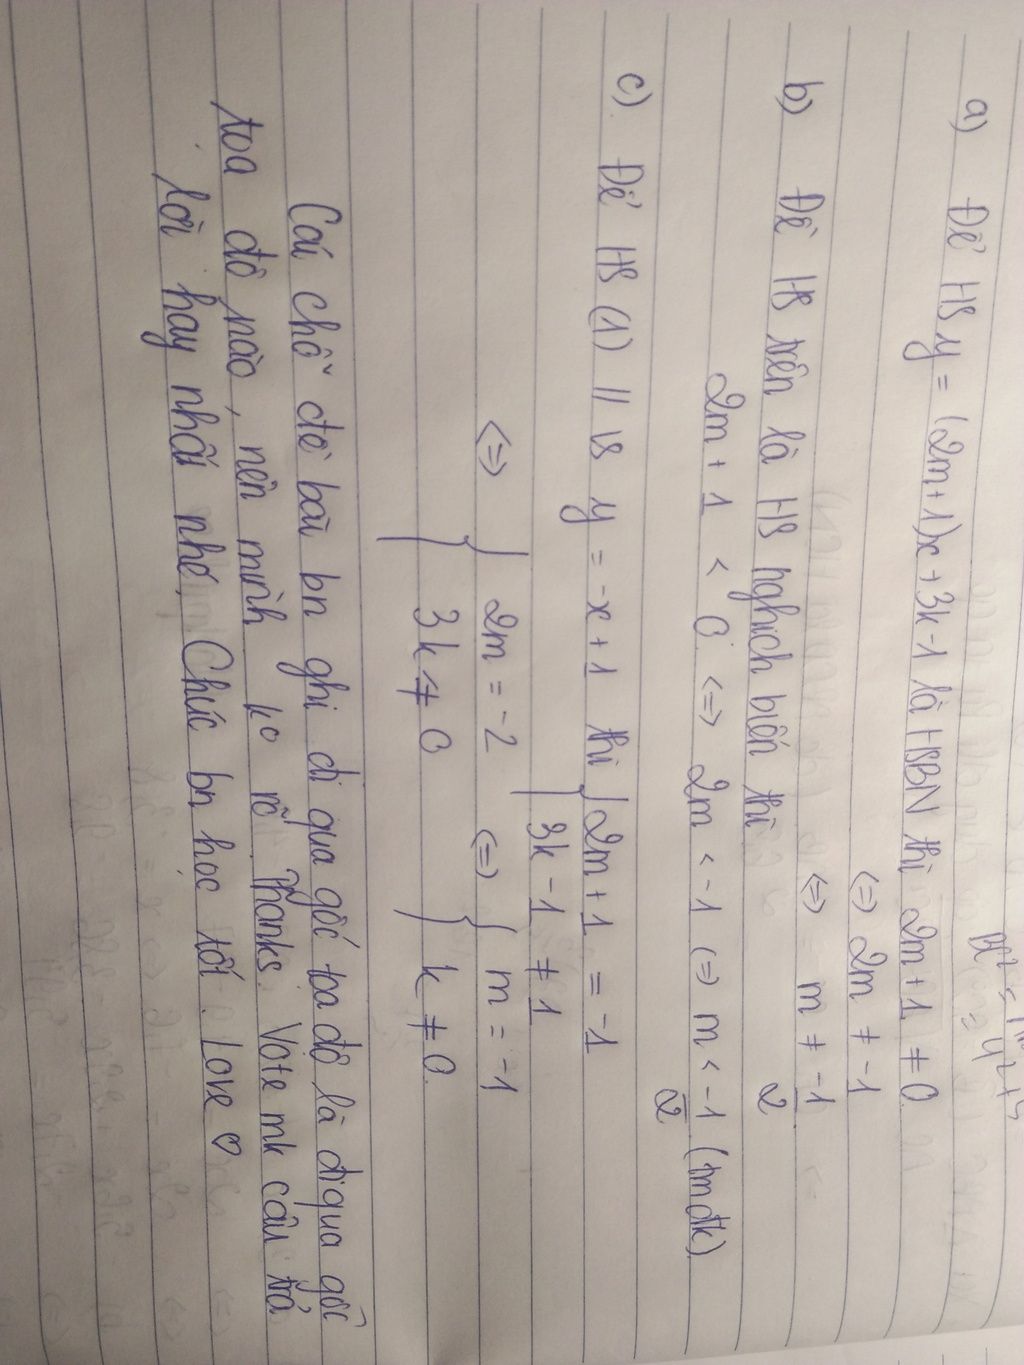 a) Để HS y = (2m+1)x + 3k-1 là HSBN thì 2m+1 ≠ 0
<=> 2m ≠ -1
<=> m ≠ -1/2
b) Để HS trên là HS nghịch biến thì
2m + 1 < 0 <=> 2m < -1 <=> m < -1/2 (tmđk)
c) Để HS (1) // vs y = -x + 1 thì { 2m + 1 = -1
3k - 1 ≠ 1
<=> { 2m = -2 <=> { m = -1
3k ≠ 0 k ≠ 0.
Cái chỗ đề bài bn ghi đi qua gốc tọa độ là đi qua gốc
toa độ nào, nên mình ko rõ Thanks. Vote mk câu trả
lời hay nhất nhé, Chúc bn học tốt. Love ♡